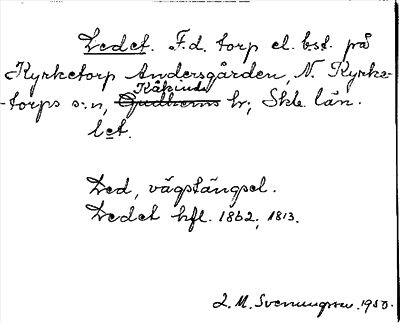 Ledet. F.d. torp el. bst. på
Kyrketorp Andersgården, N. Kyrke-
-torps s:n, Kåkinds hr; Skbl. län.
let.
Led, vägstängsel.
Ledet hfl. 1862; 1813.
L. M. Svenungsson. 1950.